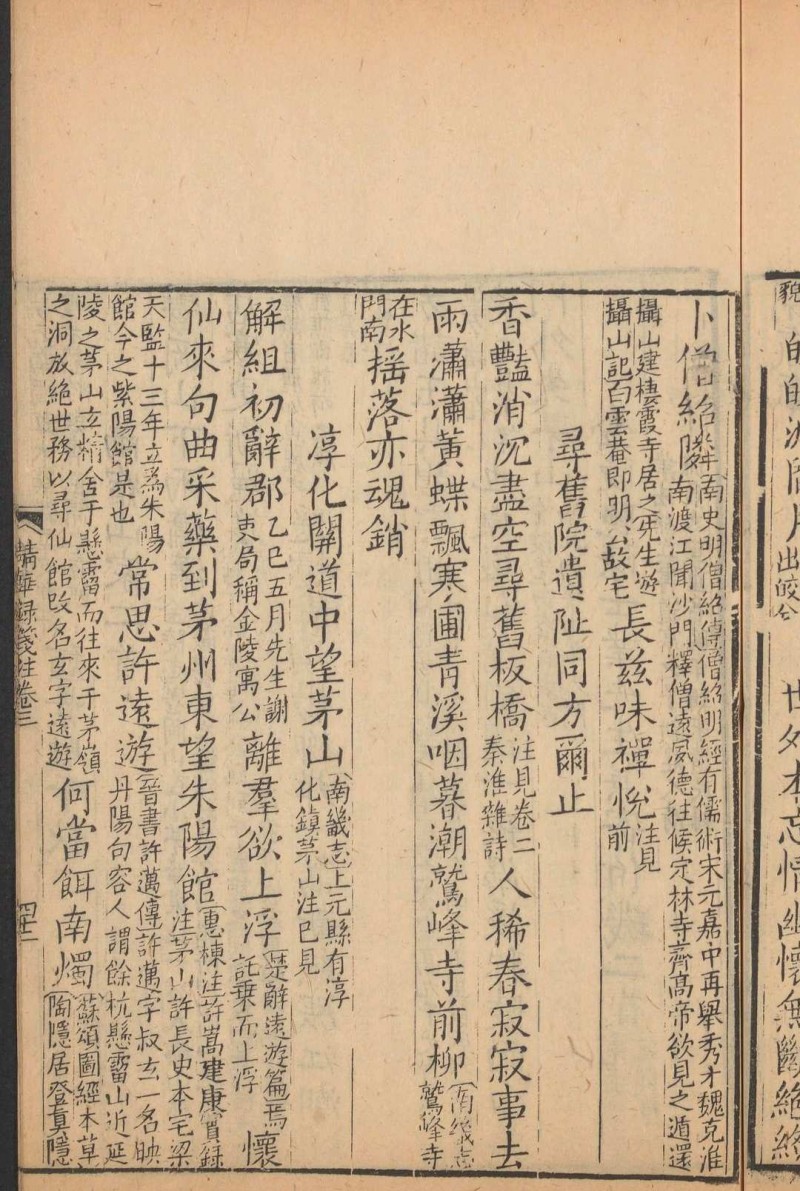 貌
的的 出皎令 世外本忘情幽懷無斷絕
卜僧紹隣南史明僧紹傳僧紹明經有儒術宋元嘉中再舉秀才魏克淮
南渡江聞沙門釋僧遠風德往候定林寺齊高帝欲見之遁還
攝山建棲霞寺居之先生遊
攝山記白雲菴即明公故宅長茲味禪悅注見
前
尋舊院遺阯同方爾止
香豔消沉盡空尋舊板橋注見卷二
秦淮雜詩人稀春寂寂事去
雨瀟瀟黃蝶飄寒圃青溪咽暮潮鷲峰寺前柳南畿志
鷲峰寺
在水
門南搖落亦魂銷
淳化關道中望茅山南畿志上元縣有淳
化鎮茅山注已見
解組初辭郡乙巳五月先生謝
吏局稱金陵寓公離羣欲上浮楚辭遠遊篇焉
託乗而上浮懷
仙來句曲采藥到茅州東望朱陽館惠棟注許嵩建康實録
注茅山許長史本宅梁
天監十三年立爲朱陽
館今之紫陽館是也常思許遠遊晉書許邁傳許邁字叔玄一名映
丹陽句容人謂餘杭懸霤山近延
陵之茅山立精舍于懸霤而往來于茅嶺
之洞放絶世務以尋仙館改名玄字遠遊何當餌南燭蘇頌圖經本草
陶隱居登真隱
精華録箋注卷三